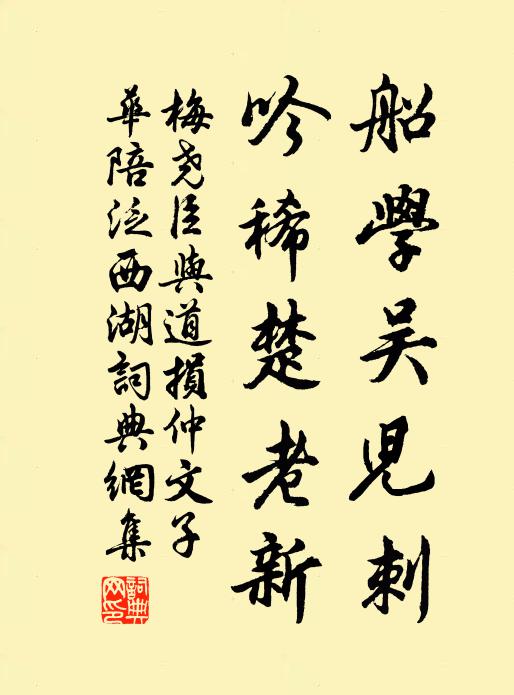 船學吳兒刺
吟稀楚老新
梅堯臣與道損仲文子
華陪泛西湖詞典網集
詞典網印